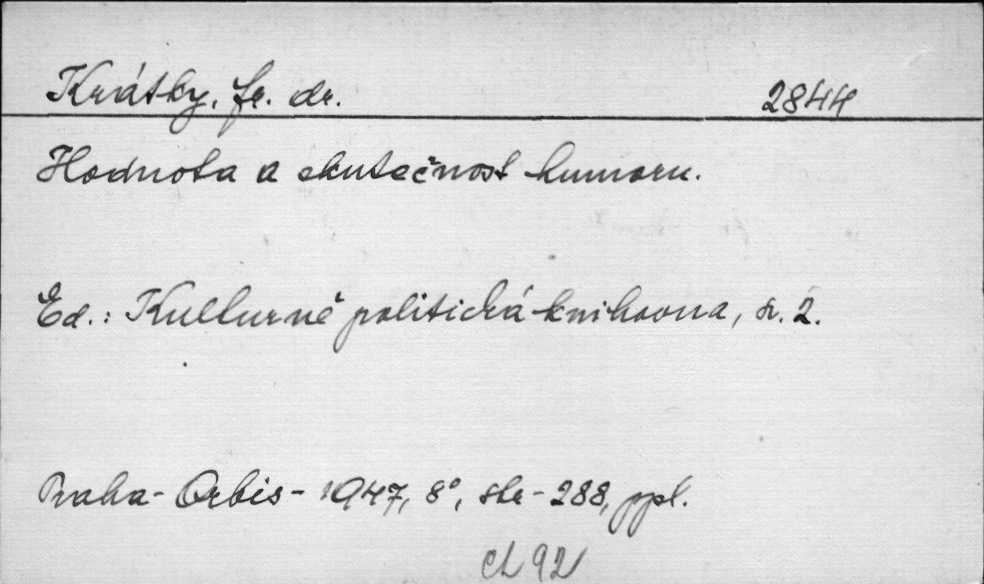 Krátky, fr. dr. 2844
Hodnota a skutečnost humoru.
Ed.: Kulturně politická knihovna, sv. 2.
Praha - Orbis - 1947, 8°, str - 288, ppl.